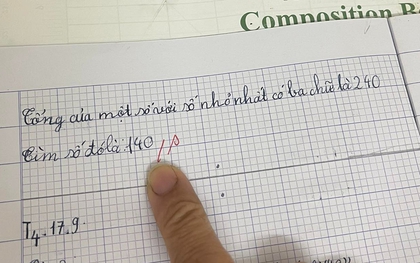 Composition B
Tổng của một số với số nhỏ nhất có ba chữ là 240
Tìm số đó là: 140
T4.17.9.